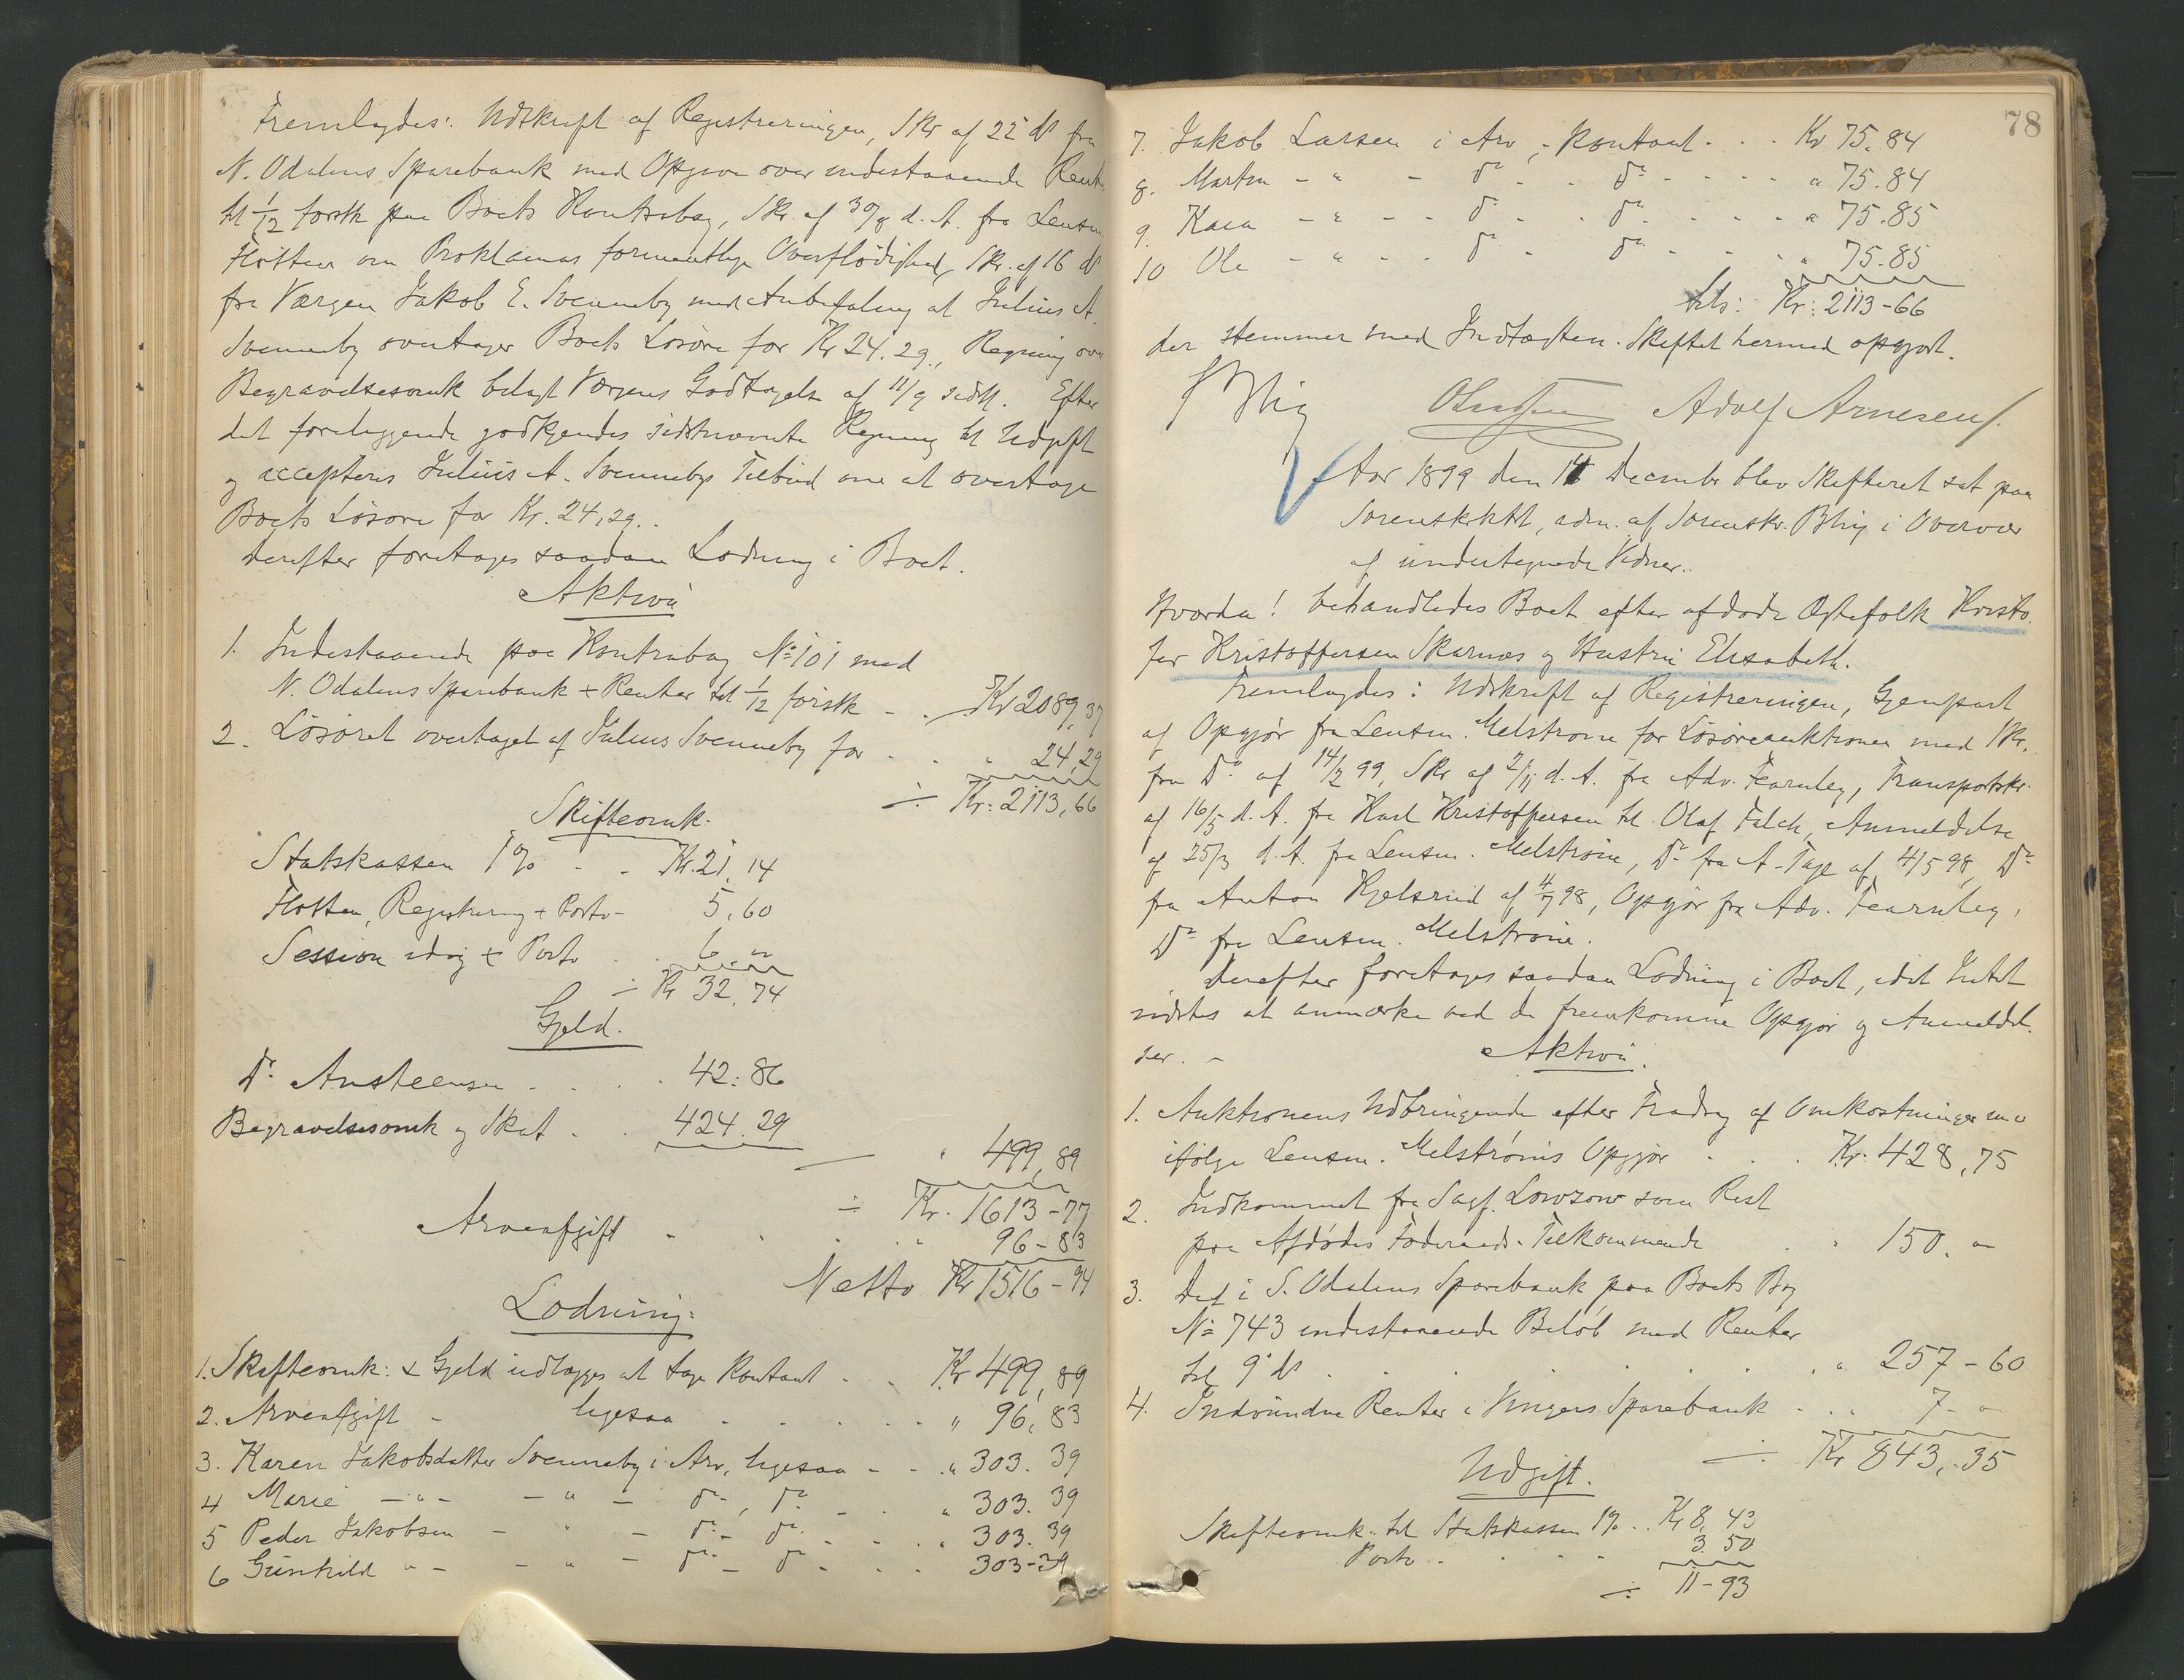 Fremlagdes: Udskrift af Registreringen, Skr af 22 ds fra
N. Odalens Sparebank med Opgave over indestaaende Rent.
til 1/12 førstk paa Boets Kontrabog, Skr. af 30/8 d. A. fra Lensm
Flötten om Proklamas formentlige Overflödighed, Skr. af 16 ds
fra Værgen Jakob E. Svenneby med Anbefaling at Julius A.
Svenneby overtager Boets Lösöre for Kr 24.29., Regning over
Begravelsesomk belagt Værgens Godtagelse af 11/9 sidstl. Efter
det foreliggende godkjendes sidstnævnte Regning til Udgift
og accepteres Julius A. Svennebys Tilbud om at overtage
Boets Lösöre for Kr. 24,29..
Derefter foretages saadan Lodning i Boet.
Aktiva
1. Indestaaende paa Kontrabog No 101 med
N. Odalens Sparebank + Renter til 1/12 förstk - . Kr 2089,37
2. Lösöret overtaget af Julius Svenneby for - . . " 24,29
÷ Kr: 2113,66
Skifteomk.
Statskassen 1% - . Kr. 21,14
Flötten, Registrering + Porto - 5,60
Session idag + Porto . . 6. "
÷ Kr 32,74
Gjeld.
Dr. Ansteensen . . . . 42:86
Begravelsesomk og Skat . . 424.29
— " 499,89
÷ Kr. 1613-77
Arveafgift - . . . " 96-83
Netto Kr 1516-94
Lodning:
1. Skifteomk: + Gjeld udlægges at tage Kontant . . Kr 499,89
2. Arveafgift - ligesaa . . . . . " 96,83
3. Karen Jakobsdatter Svenneby i Arv, ligesaa - - " 303.39
4 Marie - " - - " - do, do - . " 303.39
5 Peder Jakobsen - " - do - do - . . " 303.39
6 Gunhild " - - " - do - do - . . . 303-39
78
7. Jakob Larsen i Arv, - kontant . . . Kr 75.84
8. Martin - " - do . . do . - . . . " 75.84
9. Kaia - " - - do - . do . . . . " 75.85
10 Ole - " - . do - do - . . . " 75.85
tils: Kr: 2113-66
der stemmer med Indtægten. Skiftet hermed opgjort.
Blig Adolf Arnesen/.
Aar 1899 den 11 Decembr blev Skifteret sat paa
Sorenskrktt, adm. af Sorenskr. Blig i Overvær
af undertegnede Vidner..
Hvorda! behandledes Boet efter afdöde Ægtefolk Kristo.
fer Kristoffersen Skarnæs og Hustru Elisabeth.
Fremlagdes: Udskrift af Registreringen, Gjenpart
af Opgjör fra Lensm. Melström for Lösöreauktionen med Skr.
fra Do af 14/2 99, Skr af 2/11 d. A. fra Adv. Fearnley, Transportskr.
af 16/5 d. A. fra Karl Kristoffersen til Olaf Falch, Anmeldelse
af 25/3 d. A. fra Lensm. Melström, Do fra A. Tage af 4/5 98, Do
fra Anton Kjelsrud af 4/7 98, Opgjör fra Adv. Fearnley,
Do fra Lensm. Melström.
Derefter foretages saadan Lodning i Boet, idet Intet
vidstes at anmærke ved de fremkomne Opgjör og Anmeldel.
ser. - Aktiva.
1. Auktionens Udbringende efter Fradrag af Omkostninger m v
ifölge Lensm. Melströms Opgjör . . . Kr. 428,75
2. Indkommet fra Sagf. Lowzow som Rest
paa Afdödes Föderaads-Tilkommende . " 150. "
3. Det i S. Odalens Sparebank paa Boets Bog
No 743 indestaaende Belöb med Renter
til 9 ds . . . . . . " 257-60
4. Indvundne Renter i Vingers Sparebank . . . 7- "
÷ Kr 843,.35
Udgift.
Skifteomk. til Statskassen 1% . . Kr 8,43
Porto . . . - 3.50
÷ 11-93